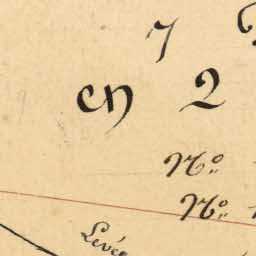 7
en 2
N.o
N.o
Levée